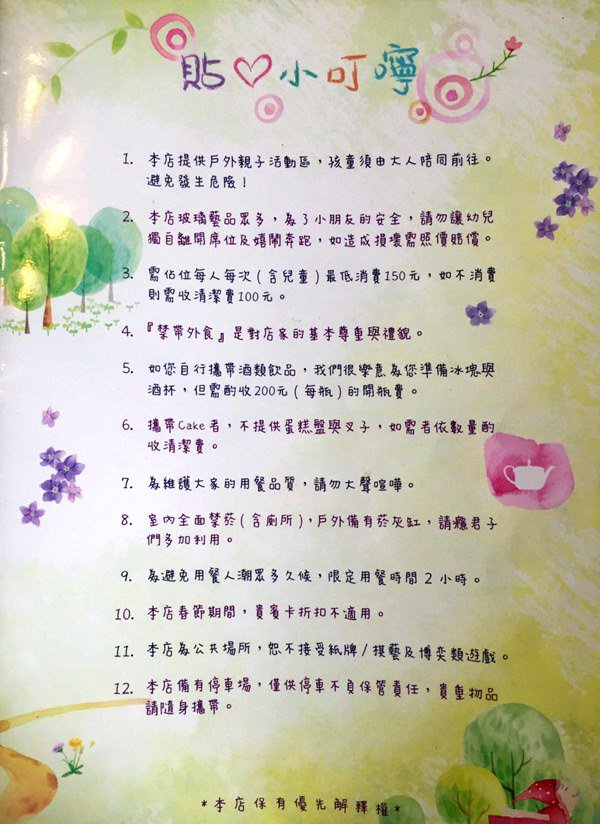 貼♡小叮嚀
1. 本店提供戶外親子活動區，孩童須由大人陪同前往。
避免發生危險！
2. 本店玻璃藝品眾多，為了小朋友的安全，請勿讓幼兒
獨自離開席位及嬉鬧奔跑，如造成損壞需照價賠償。
3. 需佔位每人每次(含兒童)最低消費150元，如不消費
則需收清潔費100元。
4. 『禁帶外食』是對店家的基本尊重與禮貌。
5. 如您自行攜帶酒類飲品，我們很樂意為您準備冰塊與
酒杯，但需酌收200元(每瓶)的開瓶費。
6. 攜帶Cake者，不提供蛋糕盤與叉子，如需者依數量酌
收清潔費。
7. 為維護大家的用餐品質，請勿大聲喧嘩。
8. 室內全面禁菸(含廁所)，戶外備有菸灰缸，請癮君子
們多加利用。
9. 為避免用餐人潮眾多久候，限定用餐時間 2 小時。
10. 本店春節期間，貴賓卡折扣不適用。
11. 本店為公共場所，恕不接受紙牌/棋藝及博奕類遊戲。
12. 本店備有停車場，僅供停車不負保管責任，貴重物品
請隨身攜帶。
*本店保有優先解釋權*